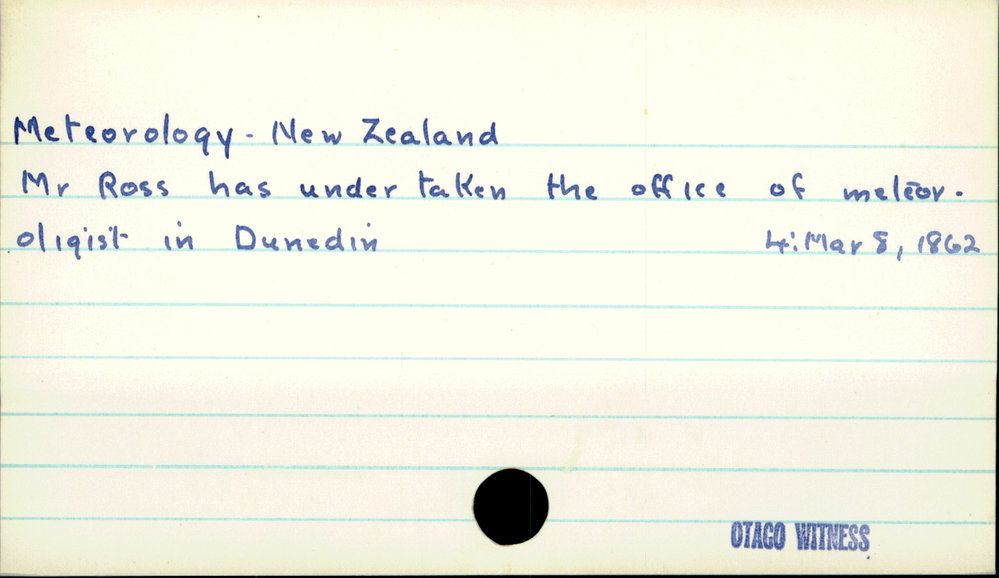 Meteorology - New Zealand
Mr Ross has undertaken the office of meteor-
oligist in Dunedin 4: Mar 8, 1862
OTAGO WITNESS